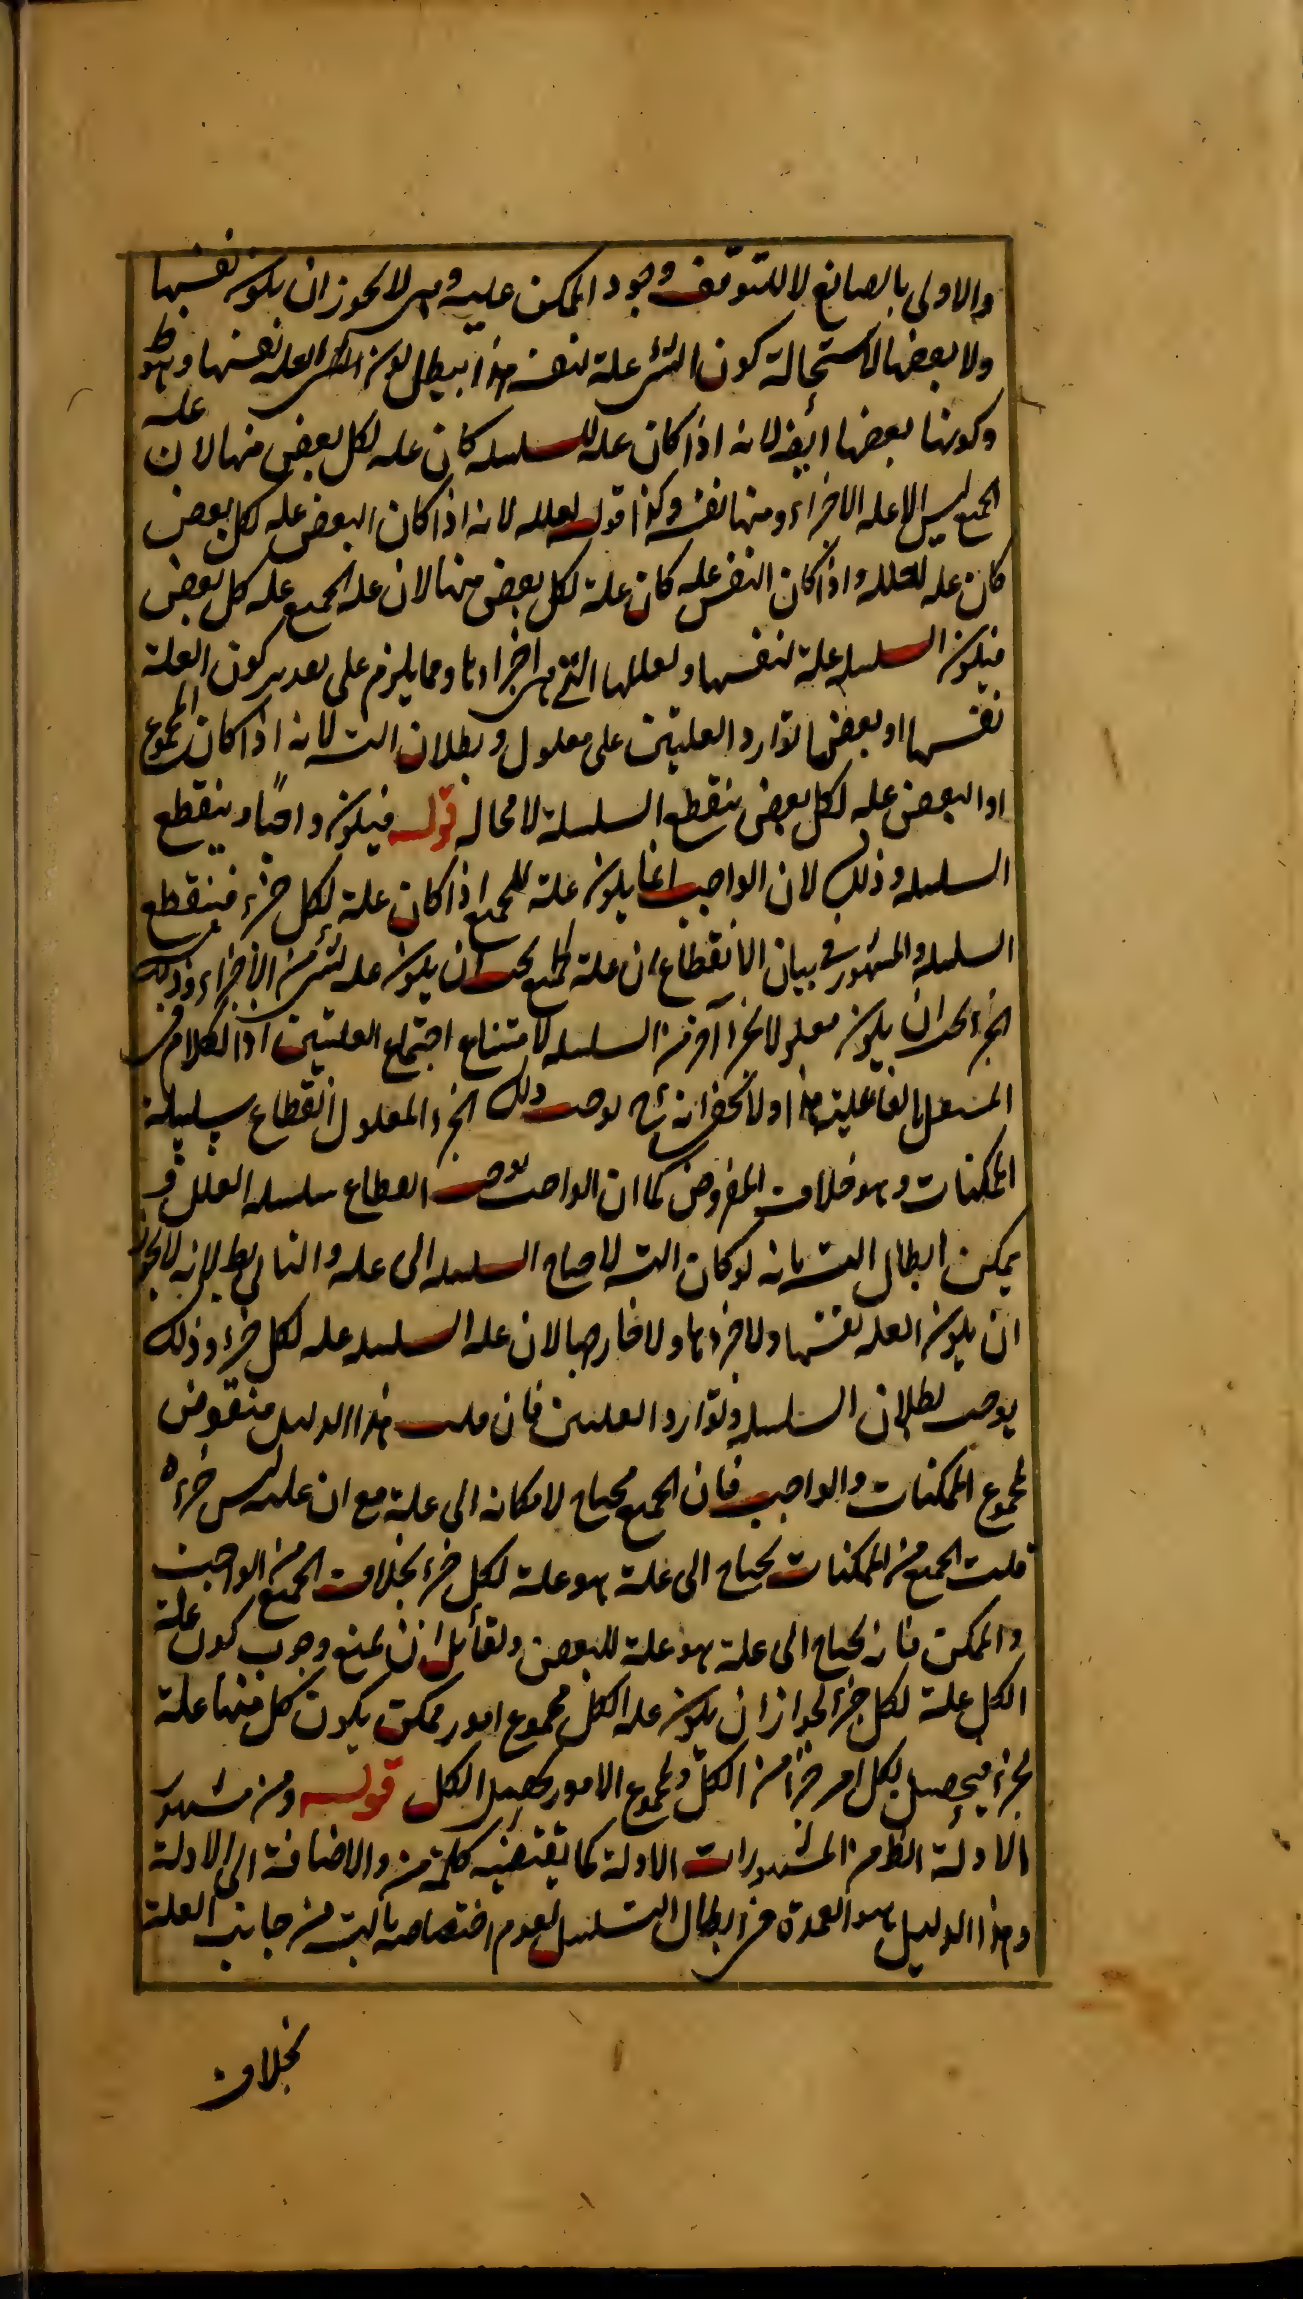 والاولى بالصانع لا للتوقف وجود الممكن عليه وهى لا يجوز ان يكون نفسها
ولا بعضها لاستحالة كون الشئ علة لنفسه هذا يبطل كون العله نفسها وهو ظ
وكونها بعضها ايضا لانه اذا كان عله للسلسله كان عله لكل بعض منها لان علة
الجميع ليس الا عله الاجزاء ومنها نفسه وكذا قوله لعلله لانه اذا كان البعض عله لكل بعض
كان عله لعلله واذا كان النفس عله كان علة لكل بعض منها لان عله الجميع عله كل بعض
فيكون السلسله علة لنفسها ولعللها التى هى اجزاءها ومما يلزم على تقدير كون العلة
نفسها او بعضها توارد العلتين على معلول وبطلان التسـ لانه اذا كان المجموع
او البعض عله لكل بعض ينقطع السلسلة لا محاله قوله فيكون واجبا وينقطع
السلسله وذلك لان الواجب انما يكون علة للجميع اذا كان علة لكل جزء فينقطع
السلسله والمشهور فى بيان الانقطاع ان علة الجميع يجب ان يكون عله لشئ من الاجزاء وذلك
الجزء يجب ان يكون معلولا لجزء آخر من السلسله لامتناع اجتماع العلتين اذ الكلام فى
المستقل بالفاعلية هذا ولا يخفى انه ح يوجب ذلك الجزء المعلول انقطاع سلسلة
الممكنات وهو خلاف المفروض كما ان الواجب يوجب انقطاع سلسله العلل و
يمكن ابطال التسـ بانه لو كان التسـ لاحتاج السلسله الى عله والتالى بط لانه لا يجوز
ان يكون العله نفسها ولا جزءها ولا خارجها لان عله السلسله عله لكل جزء وذلك
يوجب بطلان السلسله وتوارد العلتين فان قلت هذا الدليل منقوض
بمجموع الممكنات والواجب فان الجميع محتاج لامكانه الى علة مع ان علته ليس جزءه
قلت الجميع من الممكنات يحتاج الى علة هو علة لكل جزء بخلاف الجميع من الواجب
والممكن فانه يحتاج الى علة هو علة للبعض ولقائل ان يمنع وجوب كون علة
الكل علة لكل جزء لجواز ان يكون عله الكل مجموع امور ممكن يكون كل منها علة
لجزء فيحصل بكل امر جزء من الكل وبمجموع الامور يحصل الكل قوله ومن مشهور
الادلة الظ من المشهورات الادلة كما يقتضيه كلمة من والاضافة الى الادلة
وهذا الدليل هو العمدة فى ابطال التسلسل لعدم اختصاصه بالتسـ من جانب العلة
بخلاف